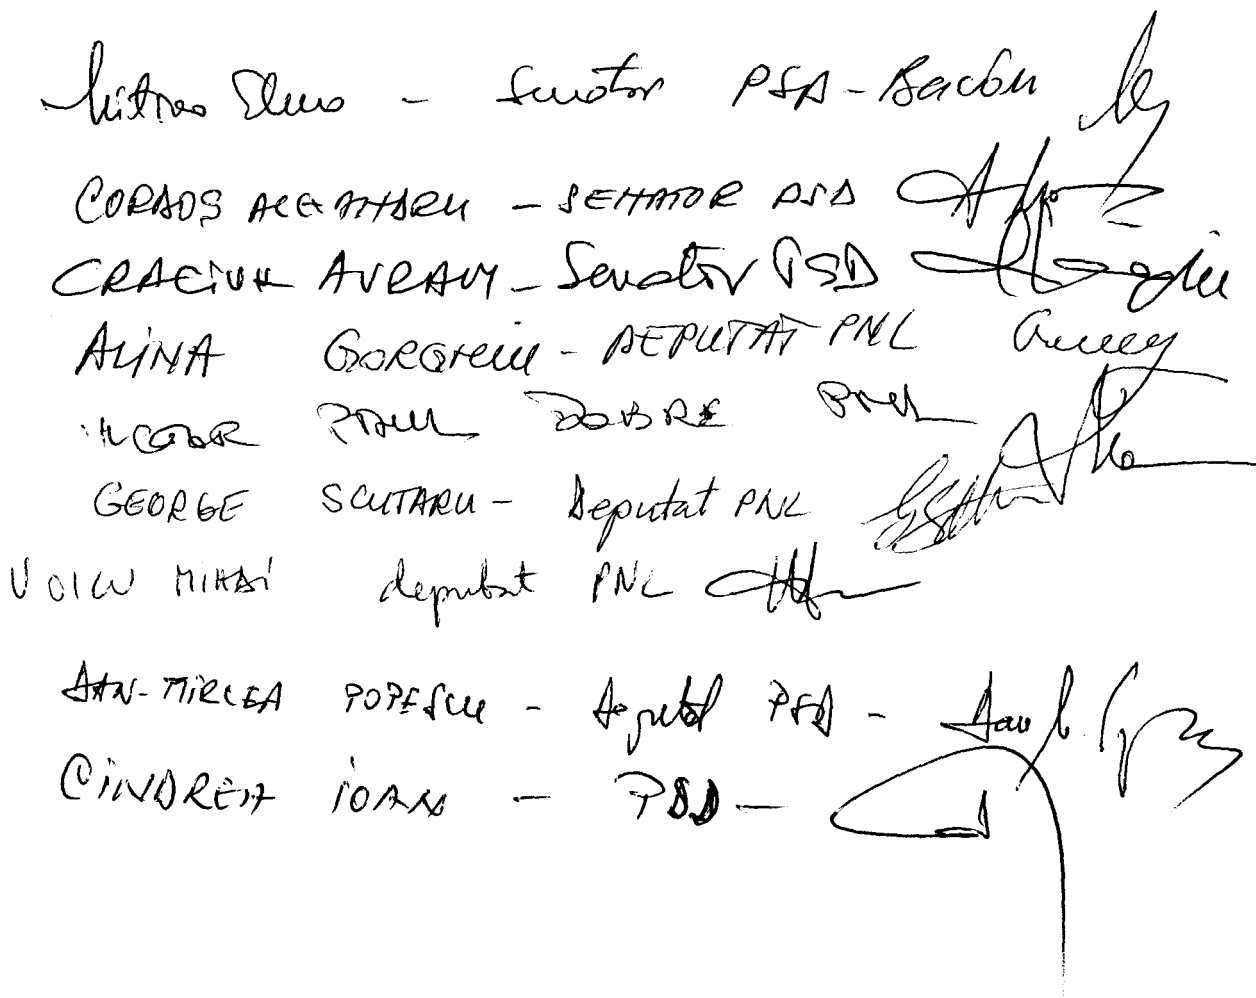 Mitrea Elena - Senator PSD - Bacău
CORDOȘ ALEXANDRU - SENATOR PSD
CRĂCIUN AVRAM - Senator PSD
ALINA GORGHIU - DEPUTAT PNL
VICTOR PAUL DOBRE PNL
GEORGE SCUTARU - Deputat PNL
VOICU MIHAI deputat PNL
DAN-MIRCEA POPESCU - Deputat PSD -
CINDREA IOAN - PSD -